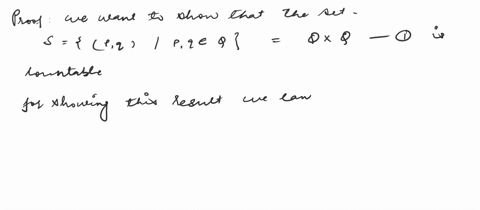 Proof: we want to show that the set -
S = { (p,q) / p,q ∈ Q } = Q × Q — ① is
countable
for showing this result we can